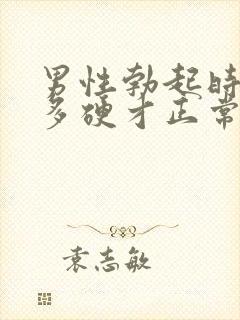 男性勃起时
多硬才正常
袁志敏